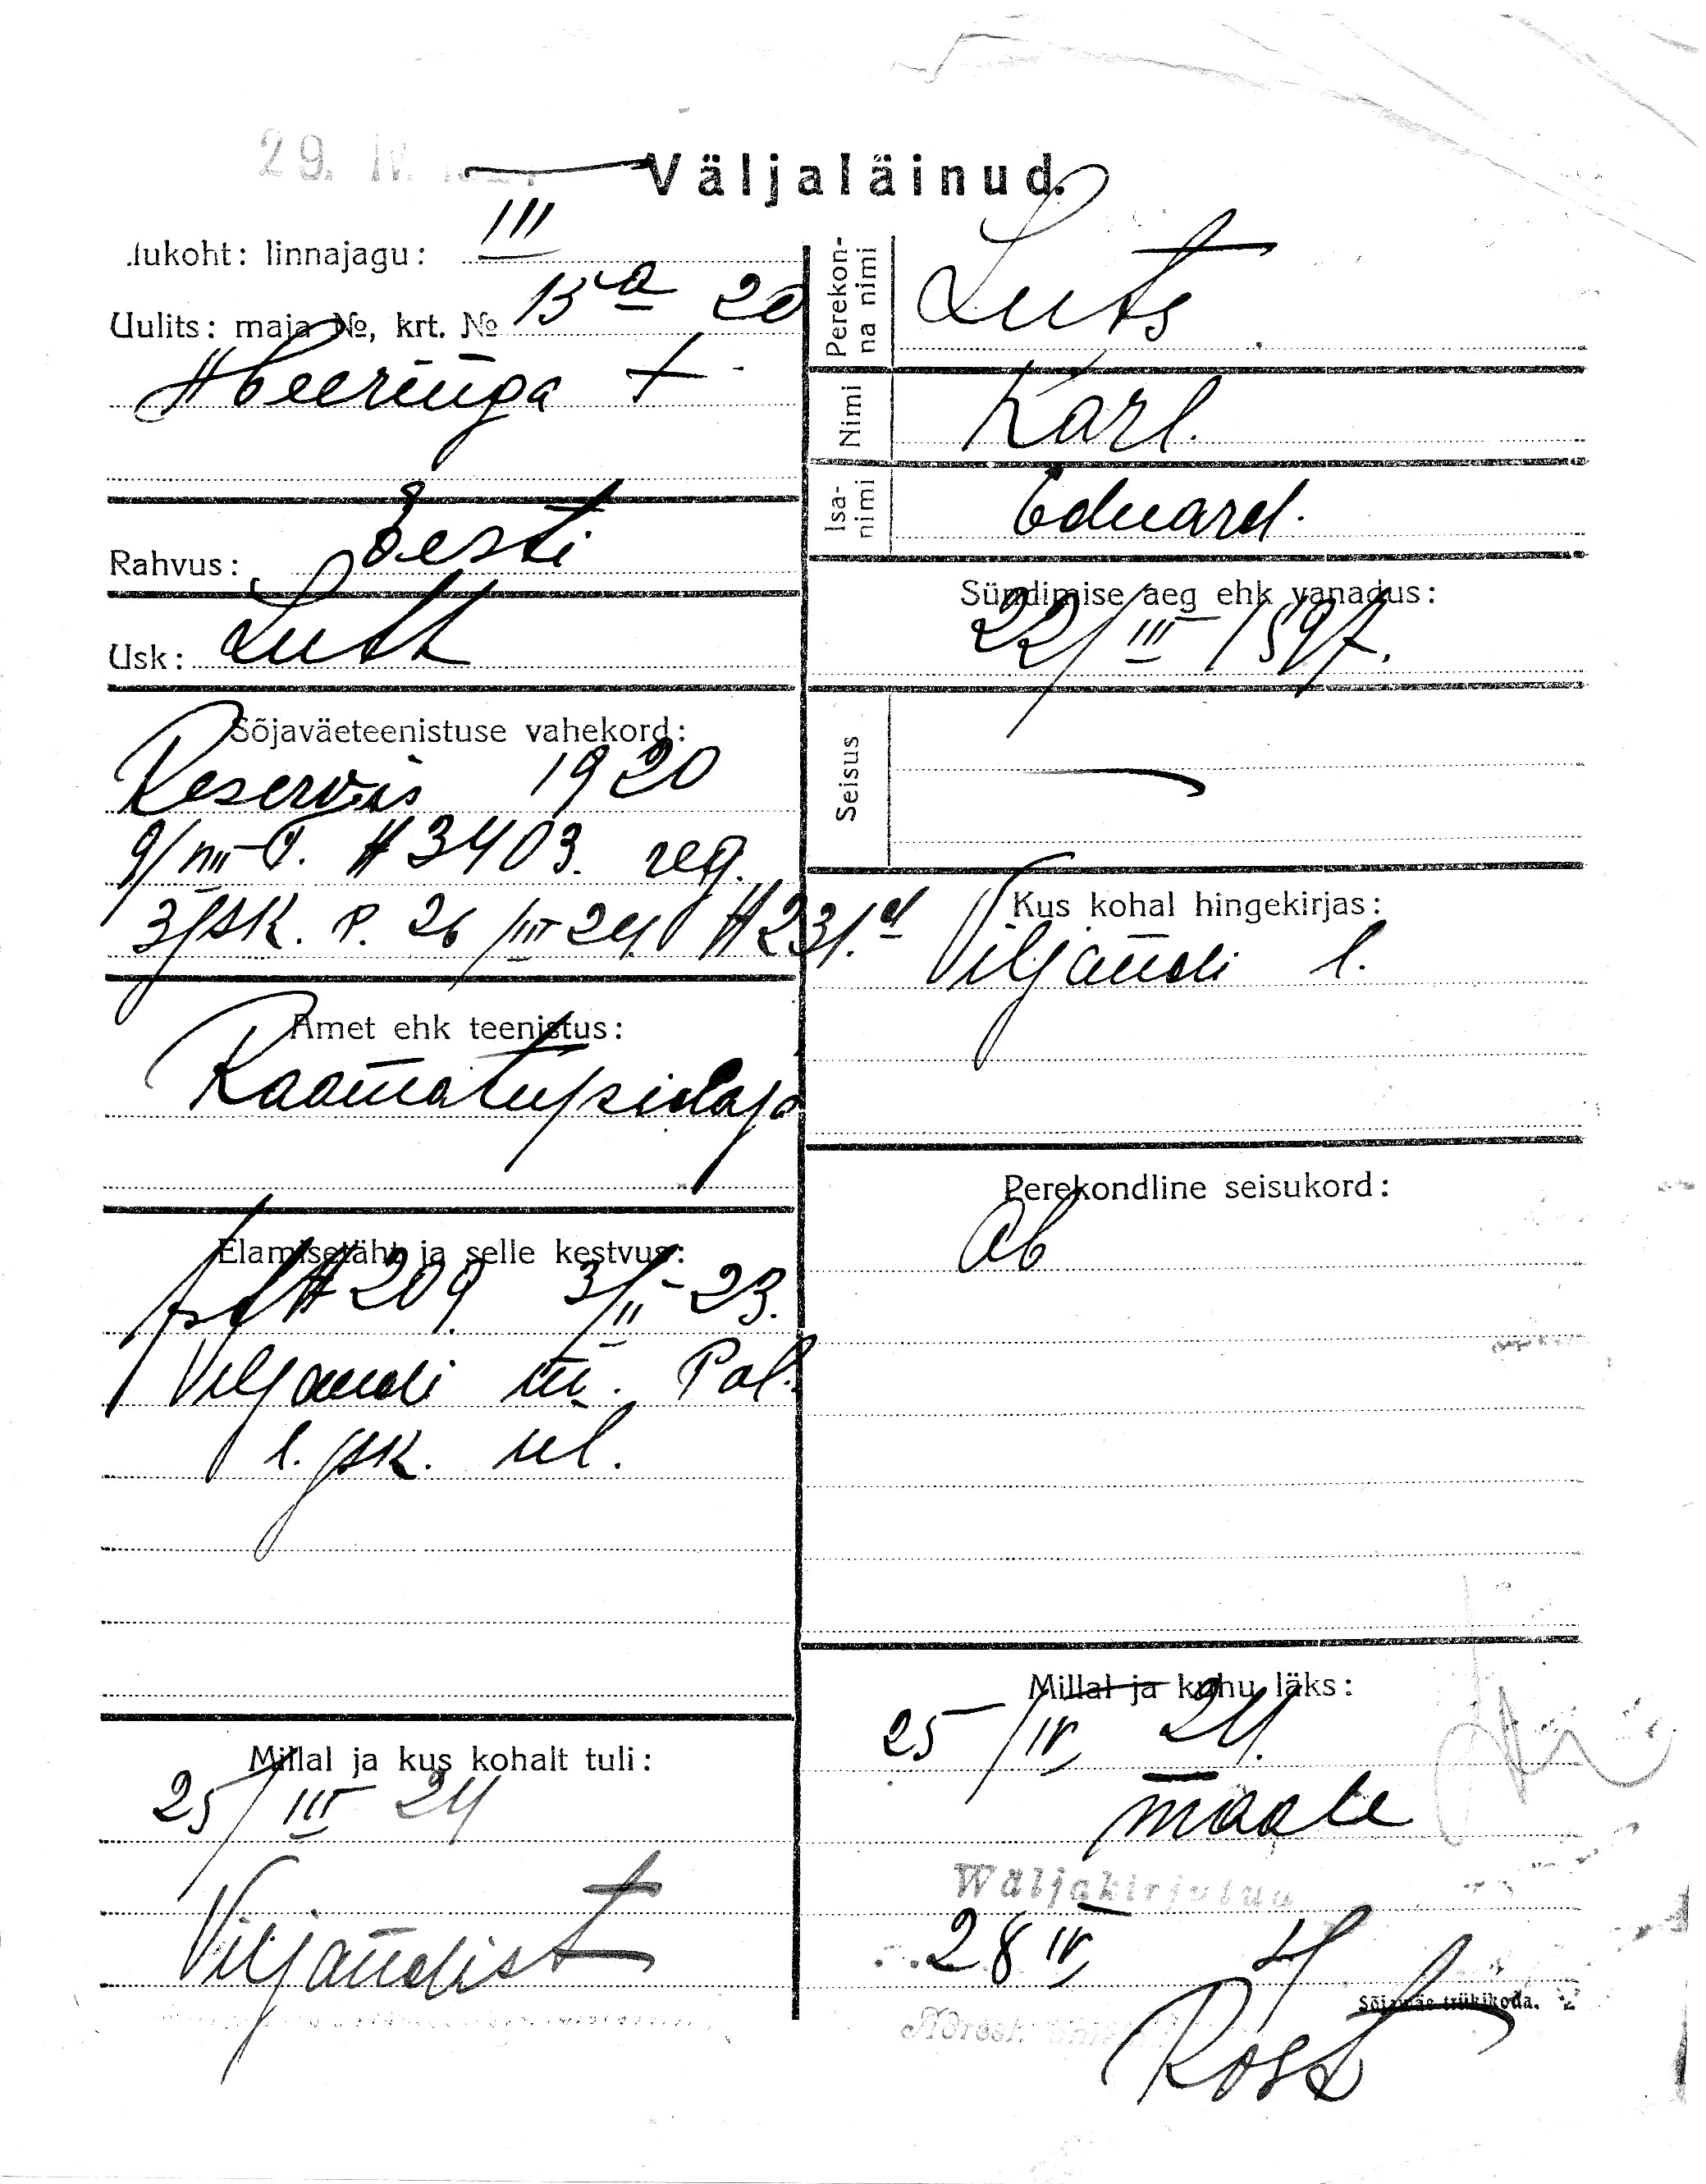 29. IV.
Väljaläinud.
.lukoht: linnajagu: III
Uulits: maja №, krt. № 15a 20
Heeringa t
Rahvus: Eesti
Usk: Luth
Sõjaväeteenistuse vahekord:
Reservis 1920
№ 3403. reg.
3 jsk. P. 26/III 24. № 231.
Amet ehk teenistus:
Raamatupidaja
Elamisetäht ja selle kestvus:
№ 209. 3/II-23.
Viljandi m. Pol.
1. jsk. ül.
Millal ja kus kohalt tuli:
25/III 24
Viljandist
Perekonna nimi
Luts
Nimi
Karl.
Isanimi
Eduard.
Sündimise aeg ehk vanadus:
22/III 1897.
Seisus
Kus kohal hingekirjas:
Viljandi l.
Perekondline seisukord:
Ab
Millal ja kuhu läks:
25/IV 24.
maale
Wäljakirjutud
28 IV 4
Sõjamäe trükikoda.
Rost